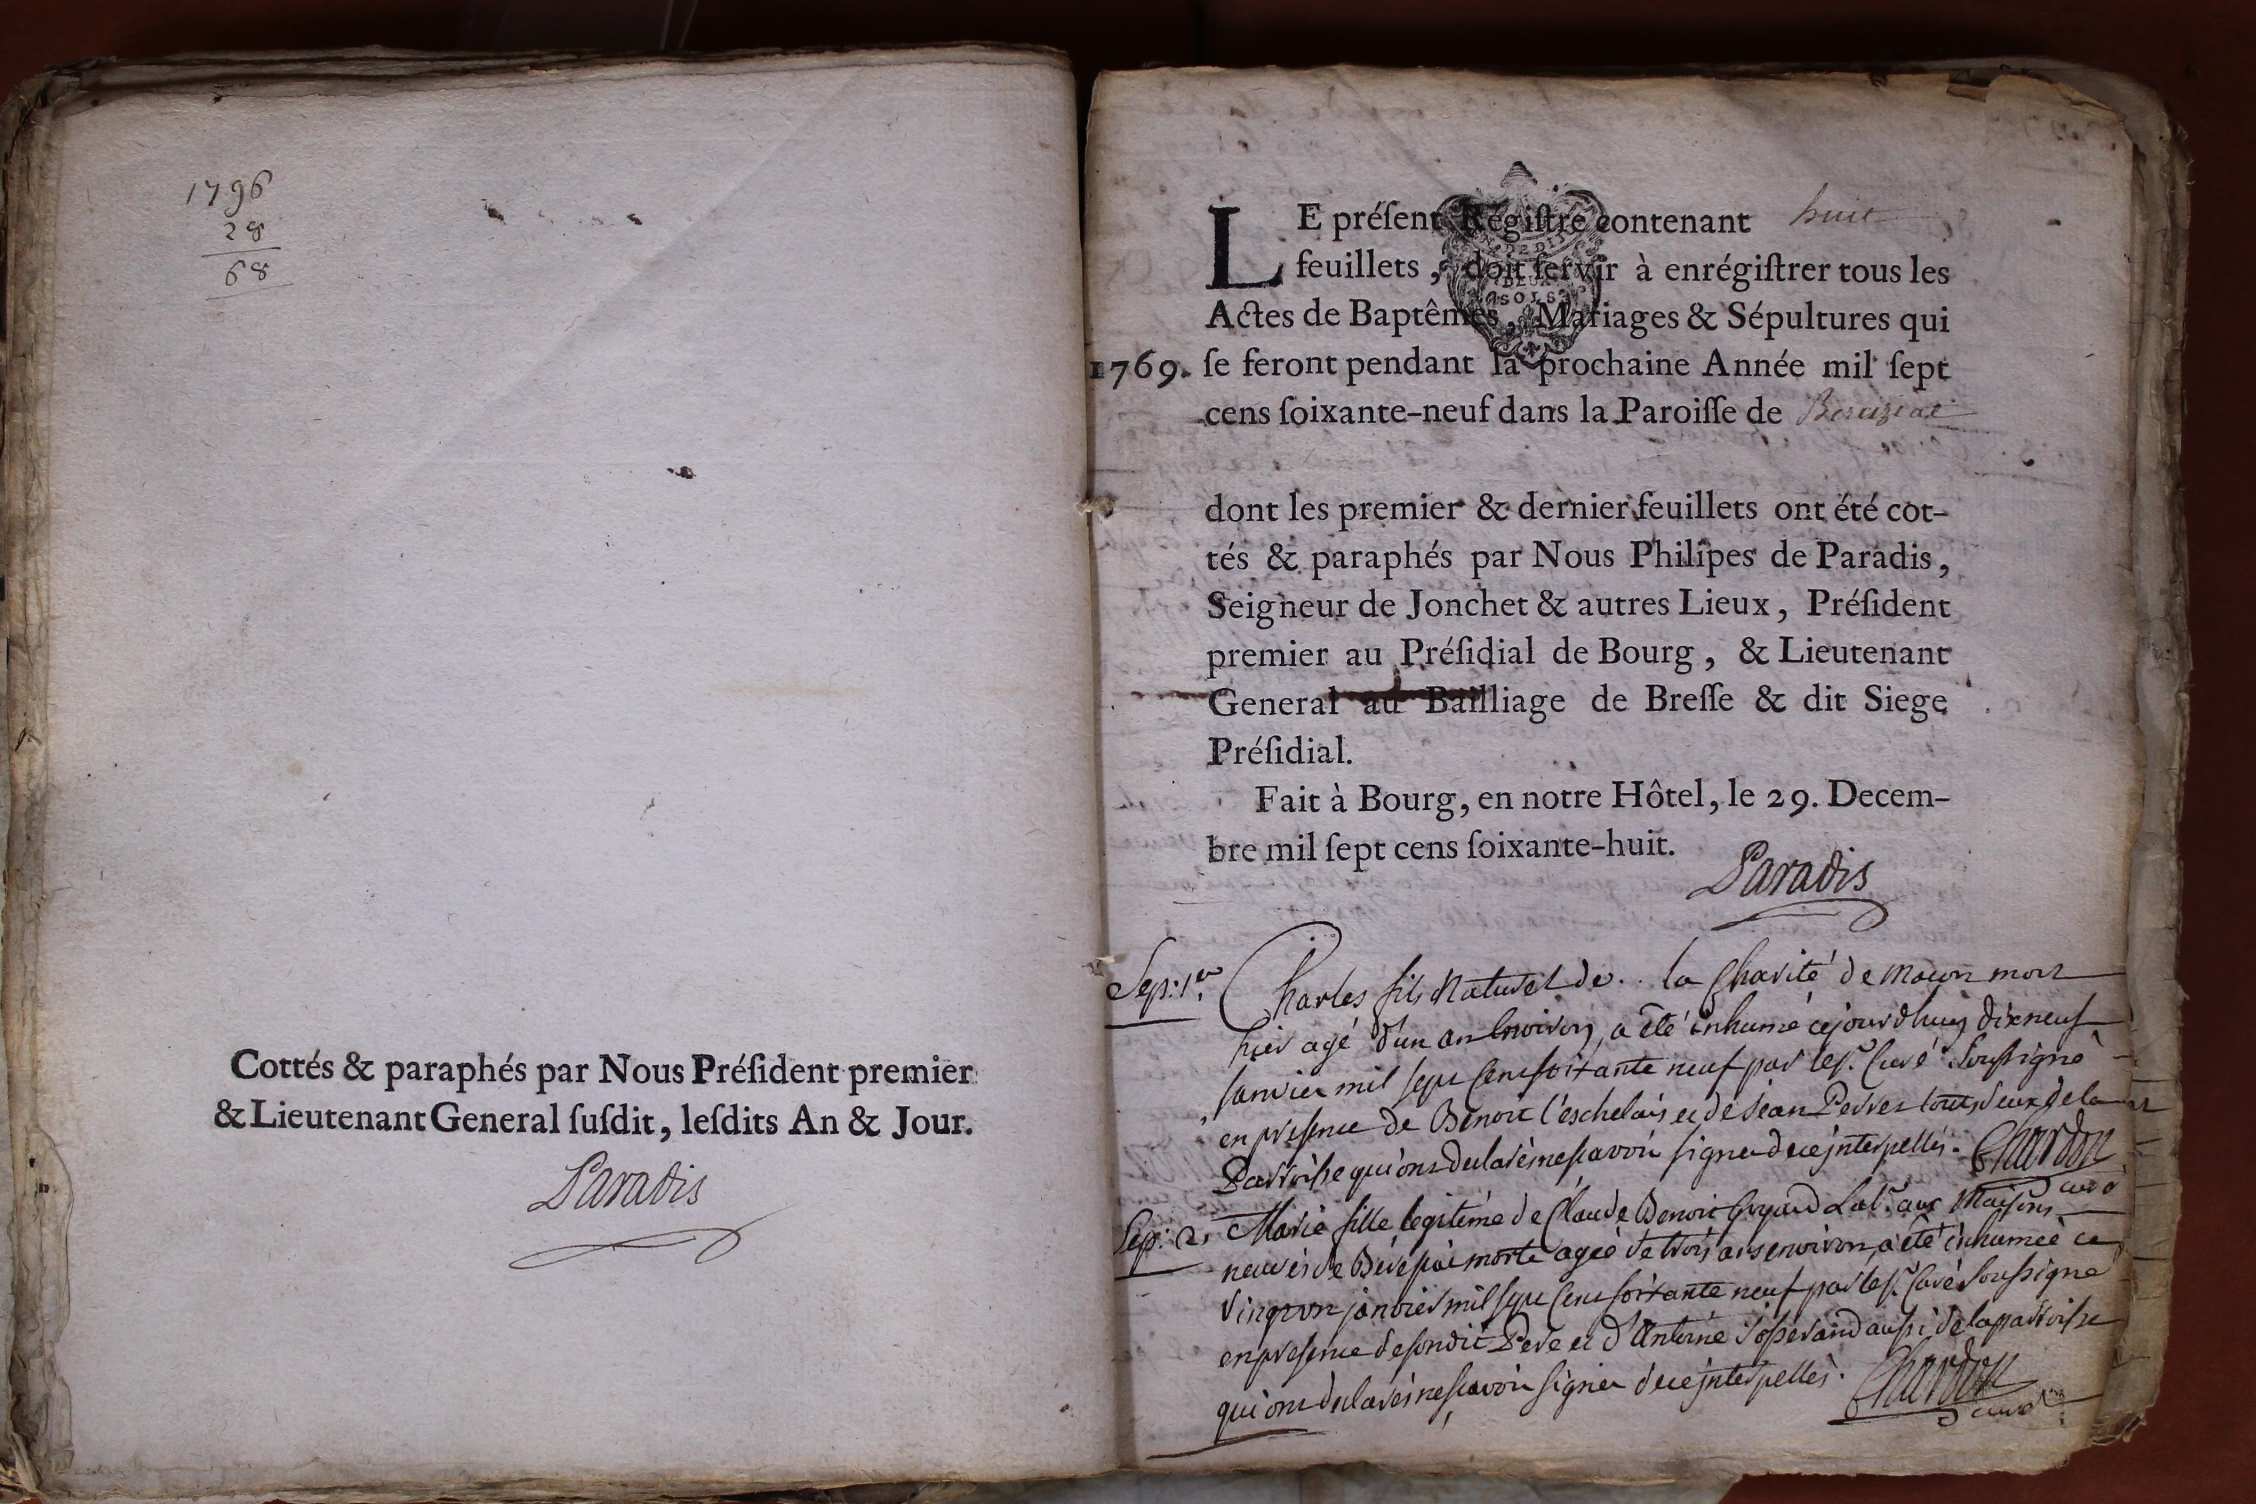 1796
28
68
Cottés & paraphés par Nous Préſident premier
& Lieutenant General ſuſdit, leſdits An & Jour.
Paradis
LE préſent Régiſtre contenant huit
feuillets, doit ſervir à enrégiſtrer tous les
Actes de Baptêmes, Mariages & Sépultures qui
1769. ſe feront pendant la prochaine Année mil ſept
cens ſoixante-neuf dans la Paroiſſe de
DEUX
SOLS
dont les premier & dernier feuillets ont été cot-
tés & paraphés par Nous Philipes de Paradis,
Seigneur de Jonchet & autres Lieux, Préſident
premier au Préſidial de Bourg, & Lieutenant
General au Bailliage de Breſſe & dit Siege
Préſidial.
Fait à Bourg, en notre Hôtel, le 29. Decem-
bre mil ſept cens ſoixante-huit.
Paradis
Sep: 1er Charles fils Naturel de .. la Charité de macon mort
hier agé d'un an Environ, a été inhumé cejourdhuy dixneuf
Janvier mil sept cent soixante neuf par le Sr. Curé Soussigné
en presence de Benoit l'eschelais et de jean Perret tous deux de la
Parroisse qui ont declaré ne scavoir signer de ce jnterpellés. Chardon
curé
Sep: 2. Marie fille legiteme de Claude Benoit Guyard Labr. aux Maisons
neuves de morte agée de trois ans environ, a été inhumée ce
vingt un janvier mil sept cent soixante neuf par le Sr. Curé Soussigné
en presence de sondit Pere et d'Antoine Josserand aussi de la parroisse
qui ont declaré ne scavoir signer de ce jnterpellés. Chardon
curé